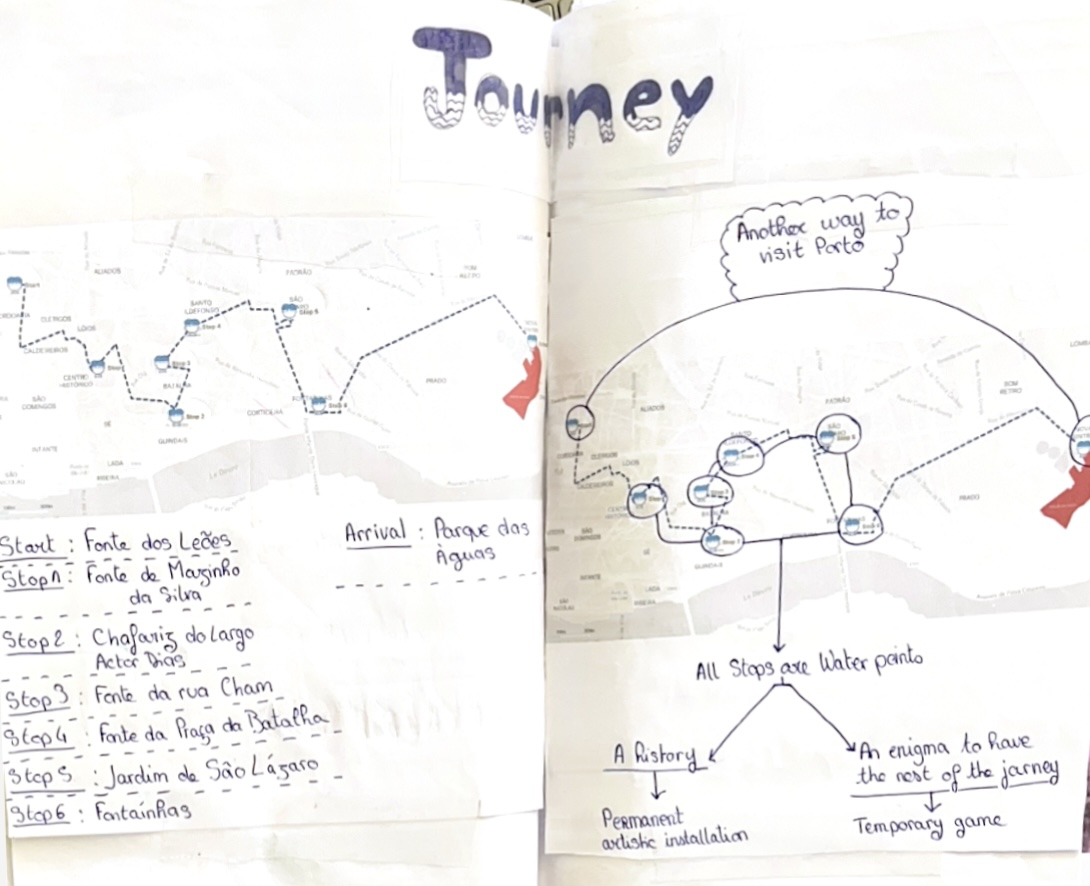 Journey
ALIADOS
PATRIÃO
SANTO
ILDEFONSO
SÃO
Stop 5
Stop 4
CLÉRIGOS
LÓIOS
CALDEIREIROS
CENTRO
HISTÓRICO
Stop 3
Stop 2
SÃO
DOMINGOS
SÉ
GUINDAIS
CORTICEIRA
PRADO
INFANTE
LADA
RIBEIRA
SÃO
NICOLAU
Start : Fonte dos Leões
Stop 1 : Fonte de Mouzinho
da Silva
Stop 2 : Chafariz do Largo
Actor Dias
Stop 3 : Fonte da rua Cham
Stop 4 : Fonte da Praça da Batalha
Stop 5 : Jardim de São Lázaro
Stop 6 : Fontaínhas
Arrival : Parque das
Águas
Another way to
visit Porto
ALIADOS
PATRIÃO
BOM
RETIRO
SÃO
CLÉRIGOS
LÓIOS
CALDEIREIROS
SÃO
DOMINGOS
SÉ
GUINDAIS
PRADO
INFANTE
LADA
RIBEIRA
All Stops are Water points
A history
Permanent
artistic installation
An enigma to have
the rest of the jarney
Temporary game